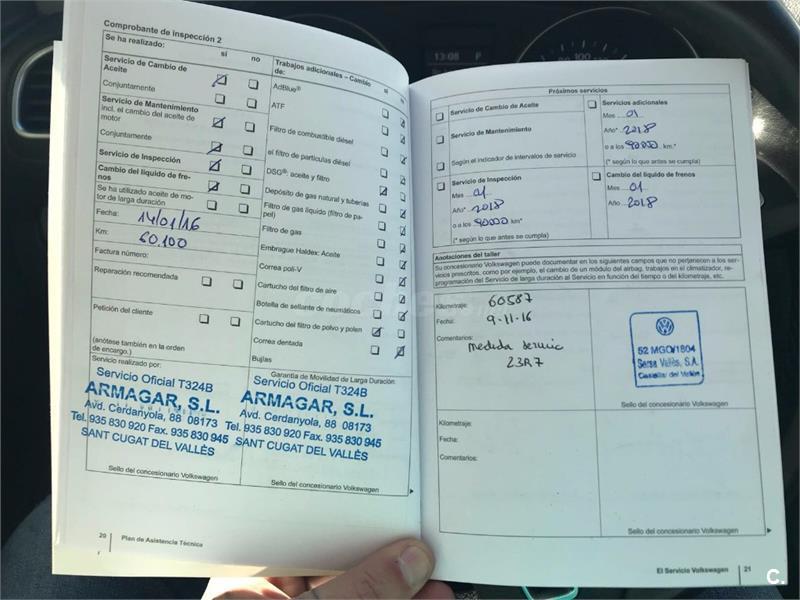 Comprobante de inspección 2
Se ha realizado:
sí no
Servicio de Cambio de
Aceite
Conjuntamente
Servicio de Mantenimiento
incl. el cambio del aceite de
motor
Conjuntamente
Servicio de Inspección
Cambio del líquido de fre-
nos
Se ha utilizado aceite de mo-
tor de larga duración
Fecha: 14/01/16
Km: 60.100
Factura número:
Reparación recomendada
Petición del cliente
(anótese también en la orden
de encargo.)
Servicio realizado por:
Servicio Oficial T324B
ARMAGAR, S.L.
Avd. Cerdanyola, 88 08173
Tel. 935 830 920 Fax. 935 830 945
SANT CUGAT DEL VALLÈS
Sello del concesionario Volkswagen
Trabajos adicionales – Cambio
de:
sí
AdBlue®
ATF
Filtro de combustible diésel
el filtro de partículas diésel
DSG®: aceite y filtro
Depósito de gas natural y tuberías
Filtro de gas líquido (filtro de pa-
pel)
Filtro de gas
Embrague Haldex: Aceite
Correa poli-V
Cartucho del filtro de aire
Botella de sellante de neumáticos
Cartucho del filtro de polvo y polen
Correa dentada
Bujías
Garantía de Movilidad de Larga Duración
Servicio Oficial T324B
ARMAGAR, S.L.
Avd. Cerdanyola, 88 08173
Tel. 935 830 920 Fax. 935 830 945
SANT CUGAT DEL VALLÈS
Sello del concesionario Volkswagen
20 Plan de Asistencia Técnica
13:08 P
Próximos servicios
Servicio de Cambio de Aceite
Servicio de Mantenimiento
Según el indicador de intervalos de servicio
Servicio de Inspección
Mes 01
Año* 2018
o a los 90000 km*
(* según lo que antes se cumpla)
Servicios adicionales
Mes 01
Año* 2018
o a los 90000 km.*
(* según lo que antes se cumpla)
Cambio del líquido de frenos
Mes 01
Año 2018
Anotaciones del taller
Su concesionario Volkswagen puede documentar en los siguientes campos que no pertenecen a los ser-
vicios prescritos, como por ejemplo, el cambio de un módulo del airbag, trabajos en el climatizador, re-
programación del Servicio de larga duración al Servicio en función del tiempo o del kilometraje, etc.
Kilometraje: 60587
Fecha: 9-11-16
Comentarios:
medida servic
23R7
52 MGO/1804
Sersa Vallès, S.A.
Castellar del Vallès
Sello del concesionario Volkswagen
Kilometraje:
Fecha:
Comentarios:
Sello del concesionario Volkswagen
El Servicio Volkswagen 21
C.